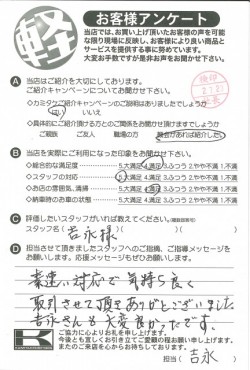 軽
お客様アンケート
当店では、お買い上げ頂いたお客様の声を可能
な限り現場に反映し、お客様により良い商品と
サービスを提供する事に努めています。
大変お手数ですが是非お声をお聞かせ下さい。
A 当店はご紹介を大切にしております。
ご紹介キャンペーンについてお聞かせ下さい。
◇カミタケご紹介キャンペーンのご説明はありましたでしょうか
はい いいえ
◇具体的にご紹介頂ける方とのご関係をお聞かせ頂けますでしょうか
ご親族 ご友人 職場の方 機会があれば紹介したい
B 当店を実際にご利用になった印象をお聞かせ下さい。
◇総合的な満足度 5.大満足 4.満足 3.ふつう 2.やや不満 1.不満
◇スタッフの対応 5.大満足 4.満足 3.ふつう 2.やや不満 1.不満
◇お店の雰囲気、清掃 5.大満足 4.満足 3.ふつう 2.やや不満 1.不満
◇納車時のお車の状態 5.大満足 4.満足 3.ふつう 2.やや不満 1.不満
C 評価したいスタッフがいれば教えてください。
スタッフ名( 吉永様 )
D 担当させて頂きましたスタッフへのご指摘、ご指導メッセージを
お願いします。応援メッセージもぜひお願いします。
素速い対応で気持ち良く
取引させて頂きありがとうございました。
吉永さんも大変良かったです。
ご協力に心よりお礼を申し上げます。
今後とも宜しくお引き立てご愛顧の程お願い申し上げます。
またのご来店を心からお待ちしております。
担当( 吉永 )